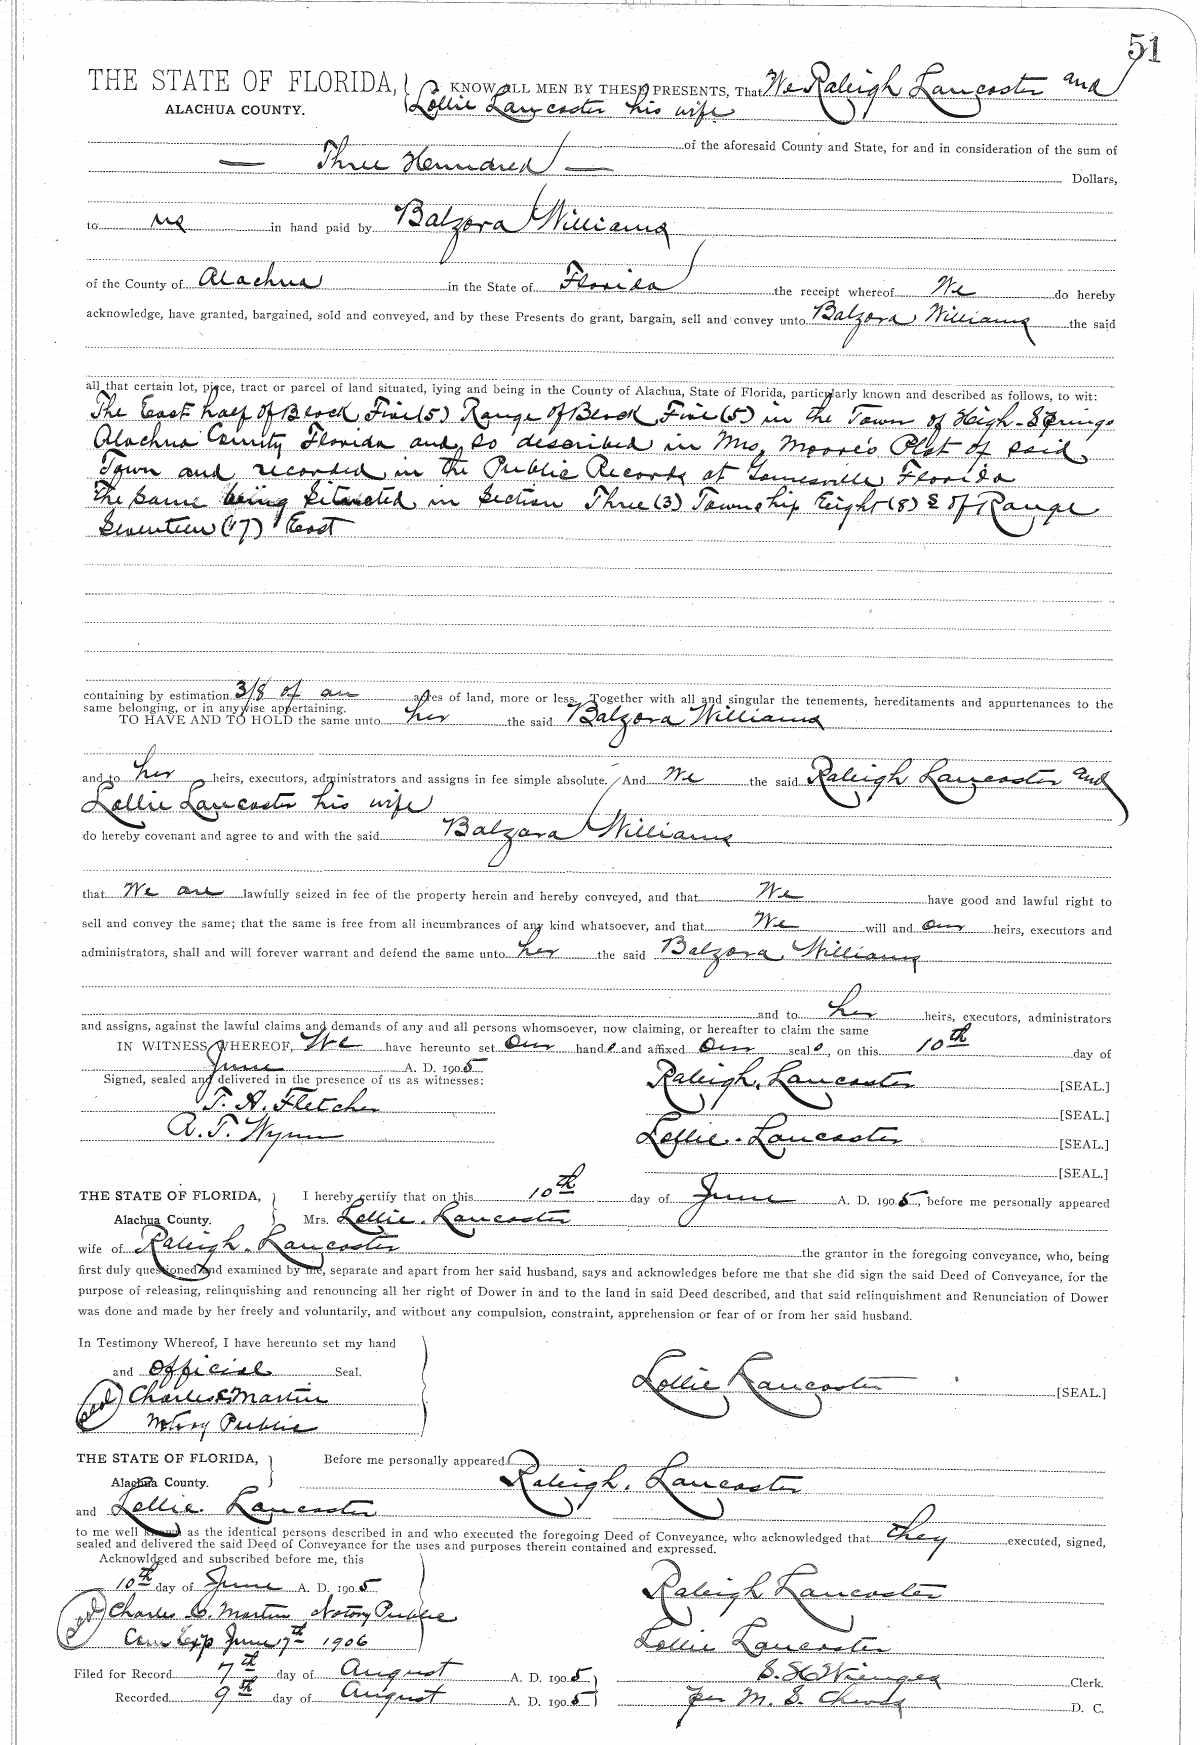 51
THE STATE OF FLORIDA, KNOW ALL MEN BY THESE PRESENTS, That We Raleigh Lancaster and
ALACHUA COUNTY. Lollie Lancaster his wife
of the aforesaid County and State, for and in consideration of the sum of
— Three Hundred — Dollars,
to us in hand paid by Balzora Williams
of the County of Alachua in the State of Florida the receipt whereof We do hereby
acknowledge, have granted, bargained, sold and conveyed, and by these Presents do grant, bargain, sell and convey unto Balzora Williams the said
all that certain lot, piece, tract or parcel of land situated, lying and being in the County of Alachua, State of Florida, particularly known and described as follows, to wit:
The East half of Block Five (5) Range of Block Five (5) in the Town of High-Springs
Alachua County Florida and so described in Mrs, Moore's Plat of said
Town and recorded in the Public Records at Gainesville Florida
The same being Situated in Section Three (3) Township Eight (8) S of Range
Seventeen (17) East
containing by estimation 3/8 of an acres of land, more or less. Together with all and singular the tenements, hereditaments and appurtenances to the
same belonging, or in anywise appertaining.
TO HAVE AND TO HOLD the same unto her the said Balzora Williams
and to her heirs, executors, administrators and assigns in fee simple absolute. And We the said Raleigh Lancaster and
Lollie Lancaster his wife
do hereby covenant and agree to and with the said Balzora Williams
that We are lawfully seized in fee of the property herein and hereby conveyed, and that We have good and lawful right to
sell and convey the same; that the same is free from all incumbrances of any kind whatsoever, and that We will and our heirs, executors and
administrators, shall and will forever warrant and defend the same unto her the said Balzora Williams
and to her heirs, executors, administrators
and assigns, against the lawful claims and demands of any and all persons whomsoever, now claiming, or hereafter to claim the same
IN WITNESS WHEREOF, We have hereunto set Our hands and affixed Our seals, on this 10th day of
June A. D. 1905
Signed, sealed and delivered in the presence of us as witnesses: Raleigh. Lancaster [SEAL.]
T. A. Fletcher [SEAL.]
R. T. Wynn Lollie. Lancaster [SEAL.]
[SEAL.]
THE STATE OF FLORIDA, I hereby certify that on this 10th day of June A. D. 1905, before me personally appeared
Alachua County. Mrs. Lollie. Lancaster
wife of Raleigh. Lancaster the grantor in the foregoing conveyance, who, being
first duly questioned and examined by me, separate and apart from her said husband, says and acknowledges before me that she did sign the said Deed of Conveyance, for the
purpose of releasing, relinquishing and renouncing all her right of Dower in and to the land in said Deed described, and that said relinquishment and Renunciation of Dower
was done and made by her freely and voluntarily, and without any compulsion, constraint, apprehension or fear of or from her said husband.
In Testimony Whereof, I have hereunto set my hand
and official Seal. Lollie Lancaster [SEAL.]
Seal Charles C Martin
Notary Public
THE STATE OF FLORIDA, Before me personally appeared
Alachua County. Raleigh. Lancaster
and Lollie. Lancaster
to me well known as the identical persons described in and who executed the foregoing Deed of Conveyance, who acknowledged that they executed, signed,
sealed and delivered the said Deed of Conveyance for the uses and purposes therein contained and expressed.
Acknowldged and subscribed before me, this
10th day of June A. D. 1905 Raleigh Lancaster
Seal Charles C. Martin Notary Public
Com Exp June 17th 1906 Lollie Lancaster
Filed for Record 7th day of August A. D. 1905 S. H. Wienges Clerk.
Recorded 9th day of August A. D. 1905 per M. S. D. C.